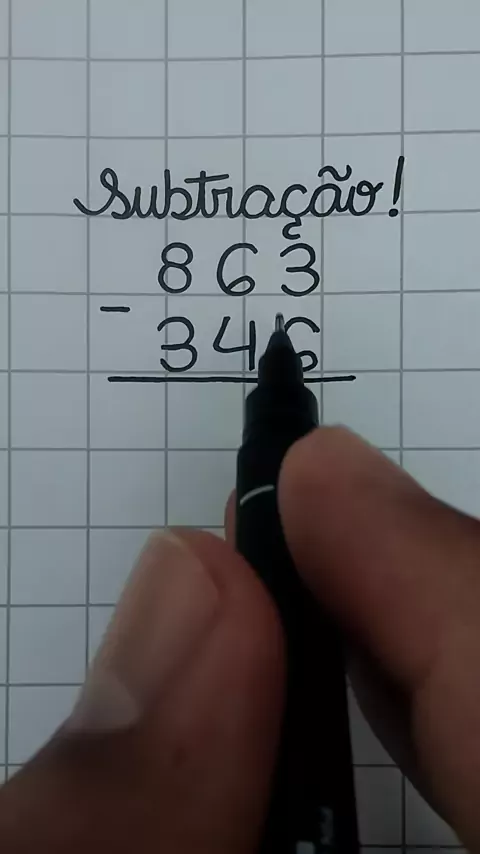 Subtração!
863
-
346